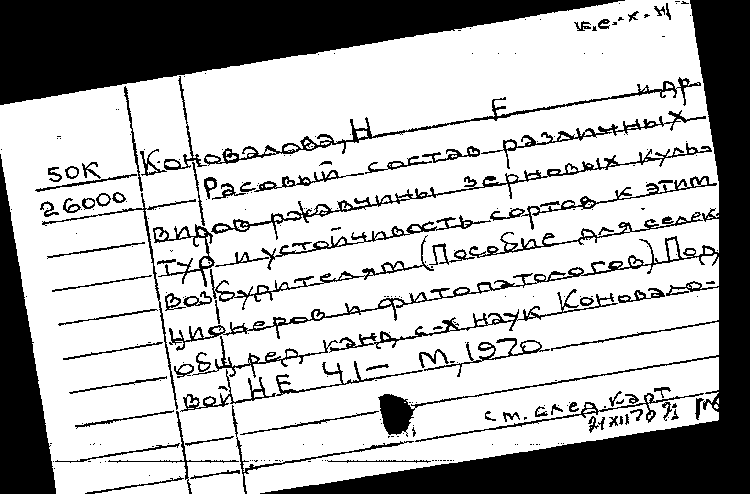 к.с.-х.н
Коновалова, Н Е и др
50К
Расовый состав различных
26000
видов ржавчины зерновых куль-
тур и устойчивость сортов к этим
возбудителям (Пособие для селек
ционеров и фитопатологов) Под
общ ред канд с-х наук Коновало-
вой Н.Е Ч.1— М., 1970
см. след. карт
21 XII 70